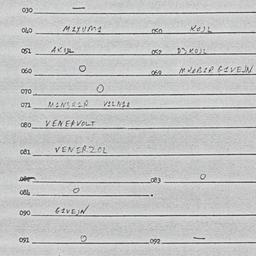 030 —
040 MAYUMI 050 KOJL
051 AKIL 052 DJKOJL
060 O 069 MKABAR GIVEJN
070 O
071 VILNIA
080 VENERVOLT
081 VENERZOL
083 O
084 O
090 GIVEJN
091 O 092 —